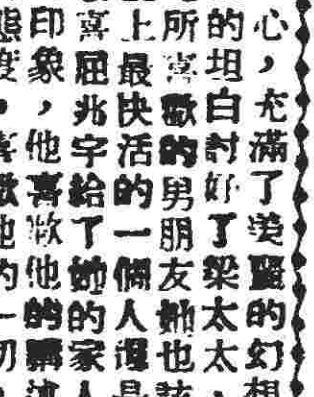 心，充滿了美麗的幻想
的坦白討好了梁太太，
所喜歡的男朋友她也該
上最快活的一個人還是
喜屈兆字給了她的家人
印象，他喜歡他的
態度，喜歡他的一切